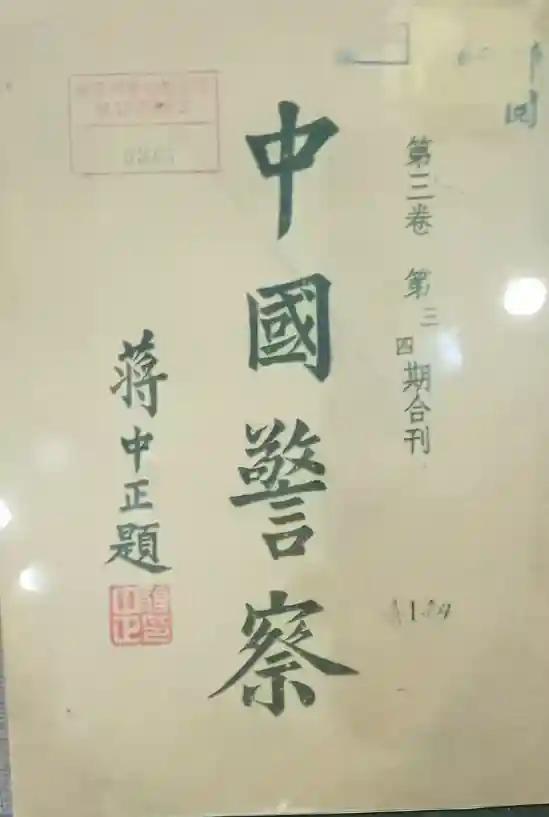 第三卷 第三四期合刊
中國警察
蔣中正題